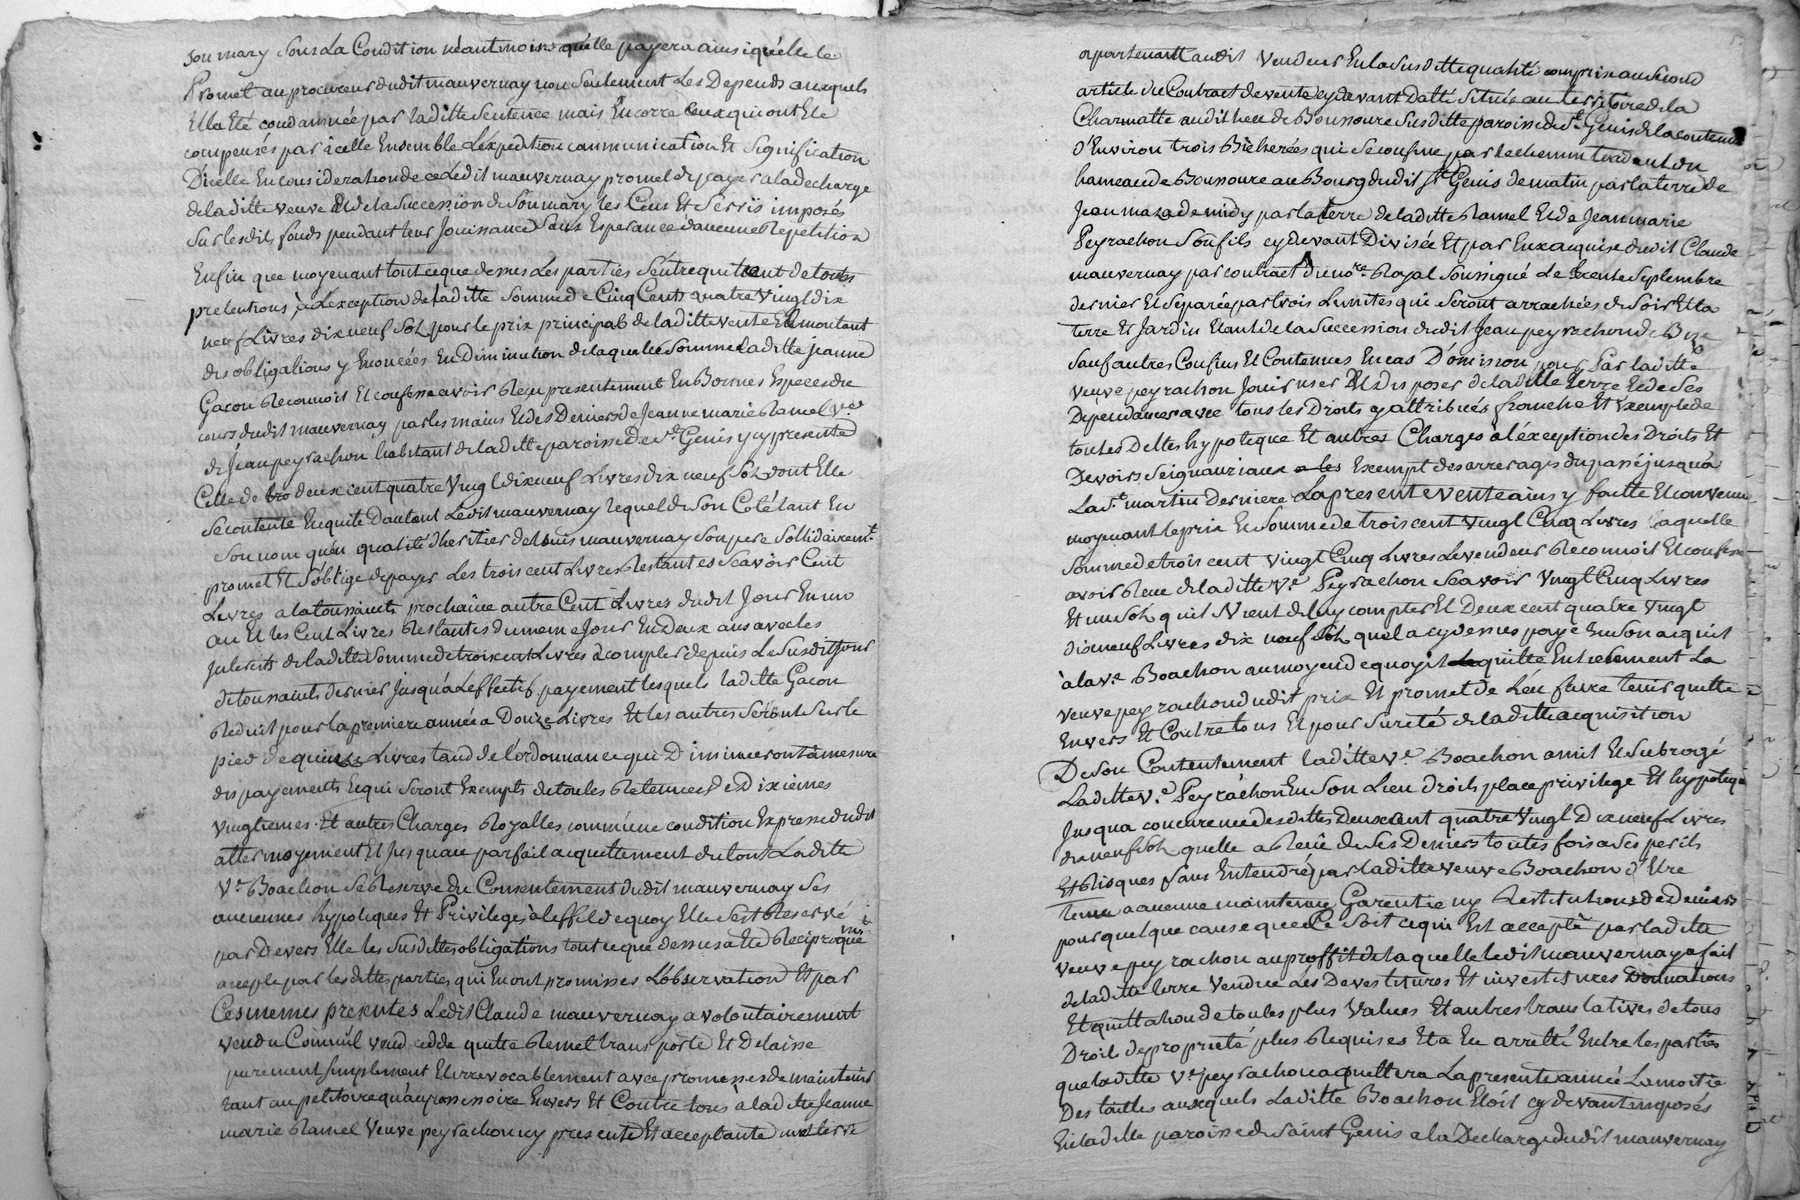 son mary sous la Condition néantmoins quélle payera ainsi quélle le
Promet au procureur dudit mauvernay non seulement les Depends auxquels
Ella Eté condamnée par laditte Sentence mais Encorre ceux qui ont Eté
compensés par icelle Ensemble L'expedition communication Et Signification
D'icelle En Consideration de ce Ledit mauvernay promet de payer a la decharge
de laditte veuve Et de la Succession de Son mary les Cens Et Servis imposés
Sur lesdits fonds pendant leur Jouissance Sans Esperance d'aucune Repetition
Enfin que moyenant tout ce que dessus Les parties S'entrequittent de toutes
pretentions à L'exception de laditte Somme de Cinq Cents quatre Vingt dix
neuf Livres dix neuf Sols pour le prix principal de laditte vente Et montant
des obligations y Enoncées En Diminution de laquelle Somme Laditte jeanne
Gacon Reconnoit Et confesse avoir Reçu presentement En Bonnes Especes de
cours dudit mauvernay par les mains Et des Deniers de Jeanne marie Ramel Vve
de Jean peyrachon habitant de laditte paroisse de St Genis y cy presente
Celle de deux cent quatre Vingt dix neuf Livres dix neuf Sols dont Elle
Se contente En quite D'autant Ledit mauvernay lequel de Son Coté tant En
Son nom qu'en qualité d'heritier de Louis mauvernay Son pere Sollidairemt
promet Et S'oblige de payer Les trois cent Livres Restantes Scavoir Cent
Livres a la toussaints prochaine autre Cent Livres dudit Jour En un
an Et les Cent Livres Restantes du meme Jour En Deux ans avec les
Interets de laditte Somme de trois cent Livres à compter depuis Le Susdit Jour
de toussaints dernier Jusqu'a L'effectif payement lesquels laditte Gacon
Reduit pour la premiere année a Douze Livres Et les autres Seront Sur le
pied de quinze Livres taud de l'ordonnance qui Diminueront à mesure
des payements Et qui Seront Exempts de toutes Retenues De Dixiemes
Vingtiemes Et autres Charges Royalles comme une condition Expresse dudit
attermoyement Et Jusquau parfait acquittement du tout Laditte
Ve Boachon Se Reserve du Consentement dudit mauvernay Ses
anciennes hypoteques Et Privileges à l'effet de quoy Elle S'est Reservé
par Devers Elle les Susdittes obligations tout ce que dessus a Eté Reciproquemt
accepté par lesdittes parties qui En ont promisses L'observation Et par
Ces memes presentes Ledit Claude mauvernay a volontairement
vendu Comme il vend cedde quitte Remet transporte Et Delaisse
purement Simplement Et irrevocablement avec promesses de maintenir
tant au petitoire qu'au possessoire Envers Et Contre tous à laditte Jeanne
marie Ramel Veuve peyrachon cy presente Et acceptante une terre
apartenant audit Vendeur En la Susditte qualité comprise au Second
article du Contract de vente cy devant Datté Situé au territoire de la
Charmatte audit lieu de Bounoure Susditte paroisse de St Genis de la contenue
d'Environ trois Bicherées qui Se confine par le chemin tendant du
hameau de Bounoure au Bourg dudit St Genis de matin par la terre de
Jean maza de midy par la terre de laditte Ramel Et de Jean marie
Peyrachon Son fils cy devant Divisée Et par Eux acquise dudit Claude
mauvernay par contract Du nore Royal Soussigné Le trente Septembre
dernier Et Separée par trois Limites qui Seront arrachées de Soir Et la
terre Et Jardin Etant de la Succession dudit Jean peyrachon de Bize
Sauf autres Confins Et Contenues En cas D'omission pour Par laditte
veuve peyrachon Jouir user Et disposer de laditte terre Et de Ses
Dependances avec tous les Droits y attribués franche Et Exempte de
toutes Dettes hypoteque Et autres Charges à l'exception des Droits Et
Devoirs Seigneuriaux Exempt des arrerages du passé jusqua
La St martin Derniere La presente vente ainsy faitte Et convenue
moyenant le prix Et Somme de trois cent Vingt Cinq Livres laquelle
Somme de trois cent Vingt Cinq Livres Le vendeur Reconnoit Et confesse
avoir Reçue de laditte Ve Peyrachon Scavoir Vingt Cinq Livres
Et un Sol quil Vient de luy compter Et Deux cent quatre Vingt
dix neuf Livres dix neuf Sols quel a cy dessus payé En Son acquit
à la ve Boachon au moyen de quoy il quitte Entierement La
veuve peyrachon dudit prix Et promet de L'en faire tenir quitte
Envers Et Contre tous Et pour Sureté de laditte acquisition
De Son Contentement laditte Ve Boachon a mit Et Subrogé
Laditte Ve Peyrachon En Son Lieu droits place privilege Et hypoteque
Jusqua concurrence desdittes Deux cent quatre Vingt Dix neuf Livres
dix neuf Sols quelle a Reçue de Ses Deniers toutes fois a Ses perils
Et Risques Sans Entendre par laditte veuve Boachon d'Etre
tenue a aucune maintenue Garentie ny Restitution de Deniers
pour quelque cause que ce Soit ce qui Est accepté par laditte
veuve peyrachon au proffit de laquelle ledit mauvernay a fait
de laditte terre Vendue Les Devestitures Et investitures Donnations
Et quittation de toutes plus Values Et autres translatives de tous
Droits de proprieté plus Requises Et a Eu arretté Entre les parties
que laditte Ve peyrachon aquittera La presente année La moitié
Des tailles auxquels Laditte Boachon Etoit cy devant imposés
En laditte paroisse de Saint Genis a la Decharge dudit mauvernay